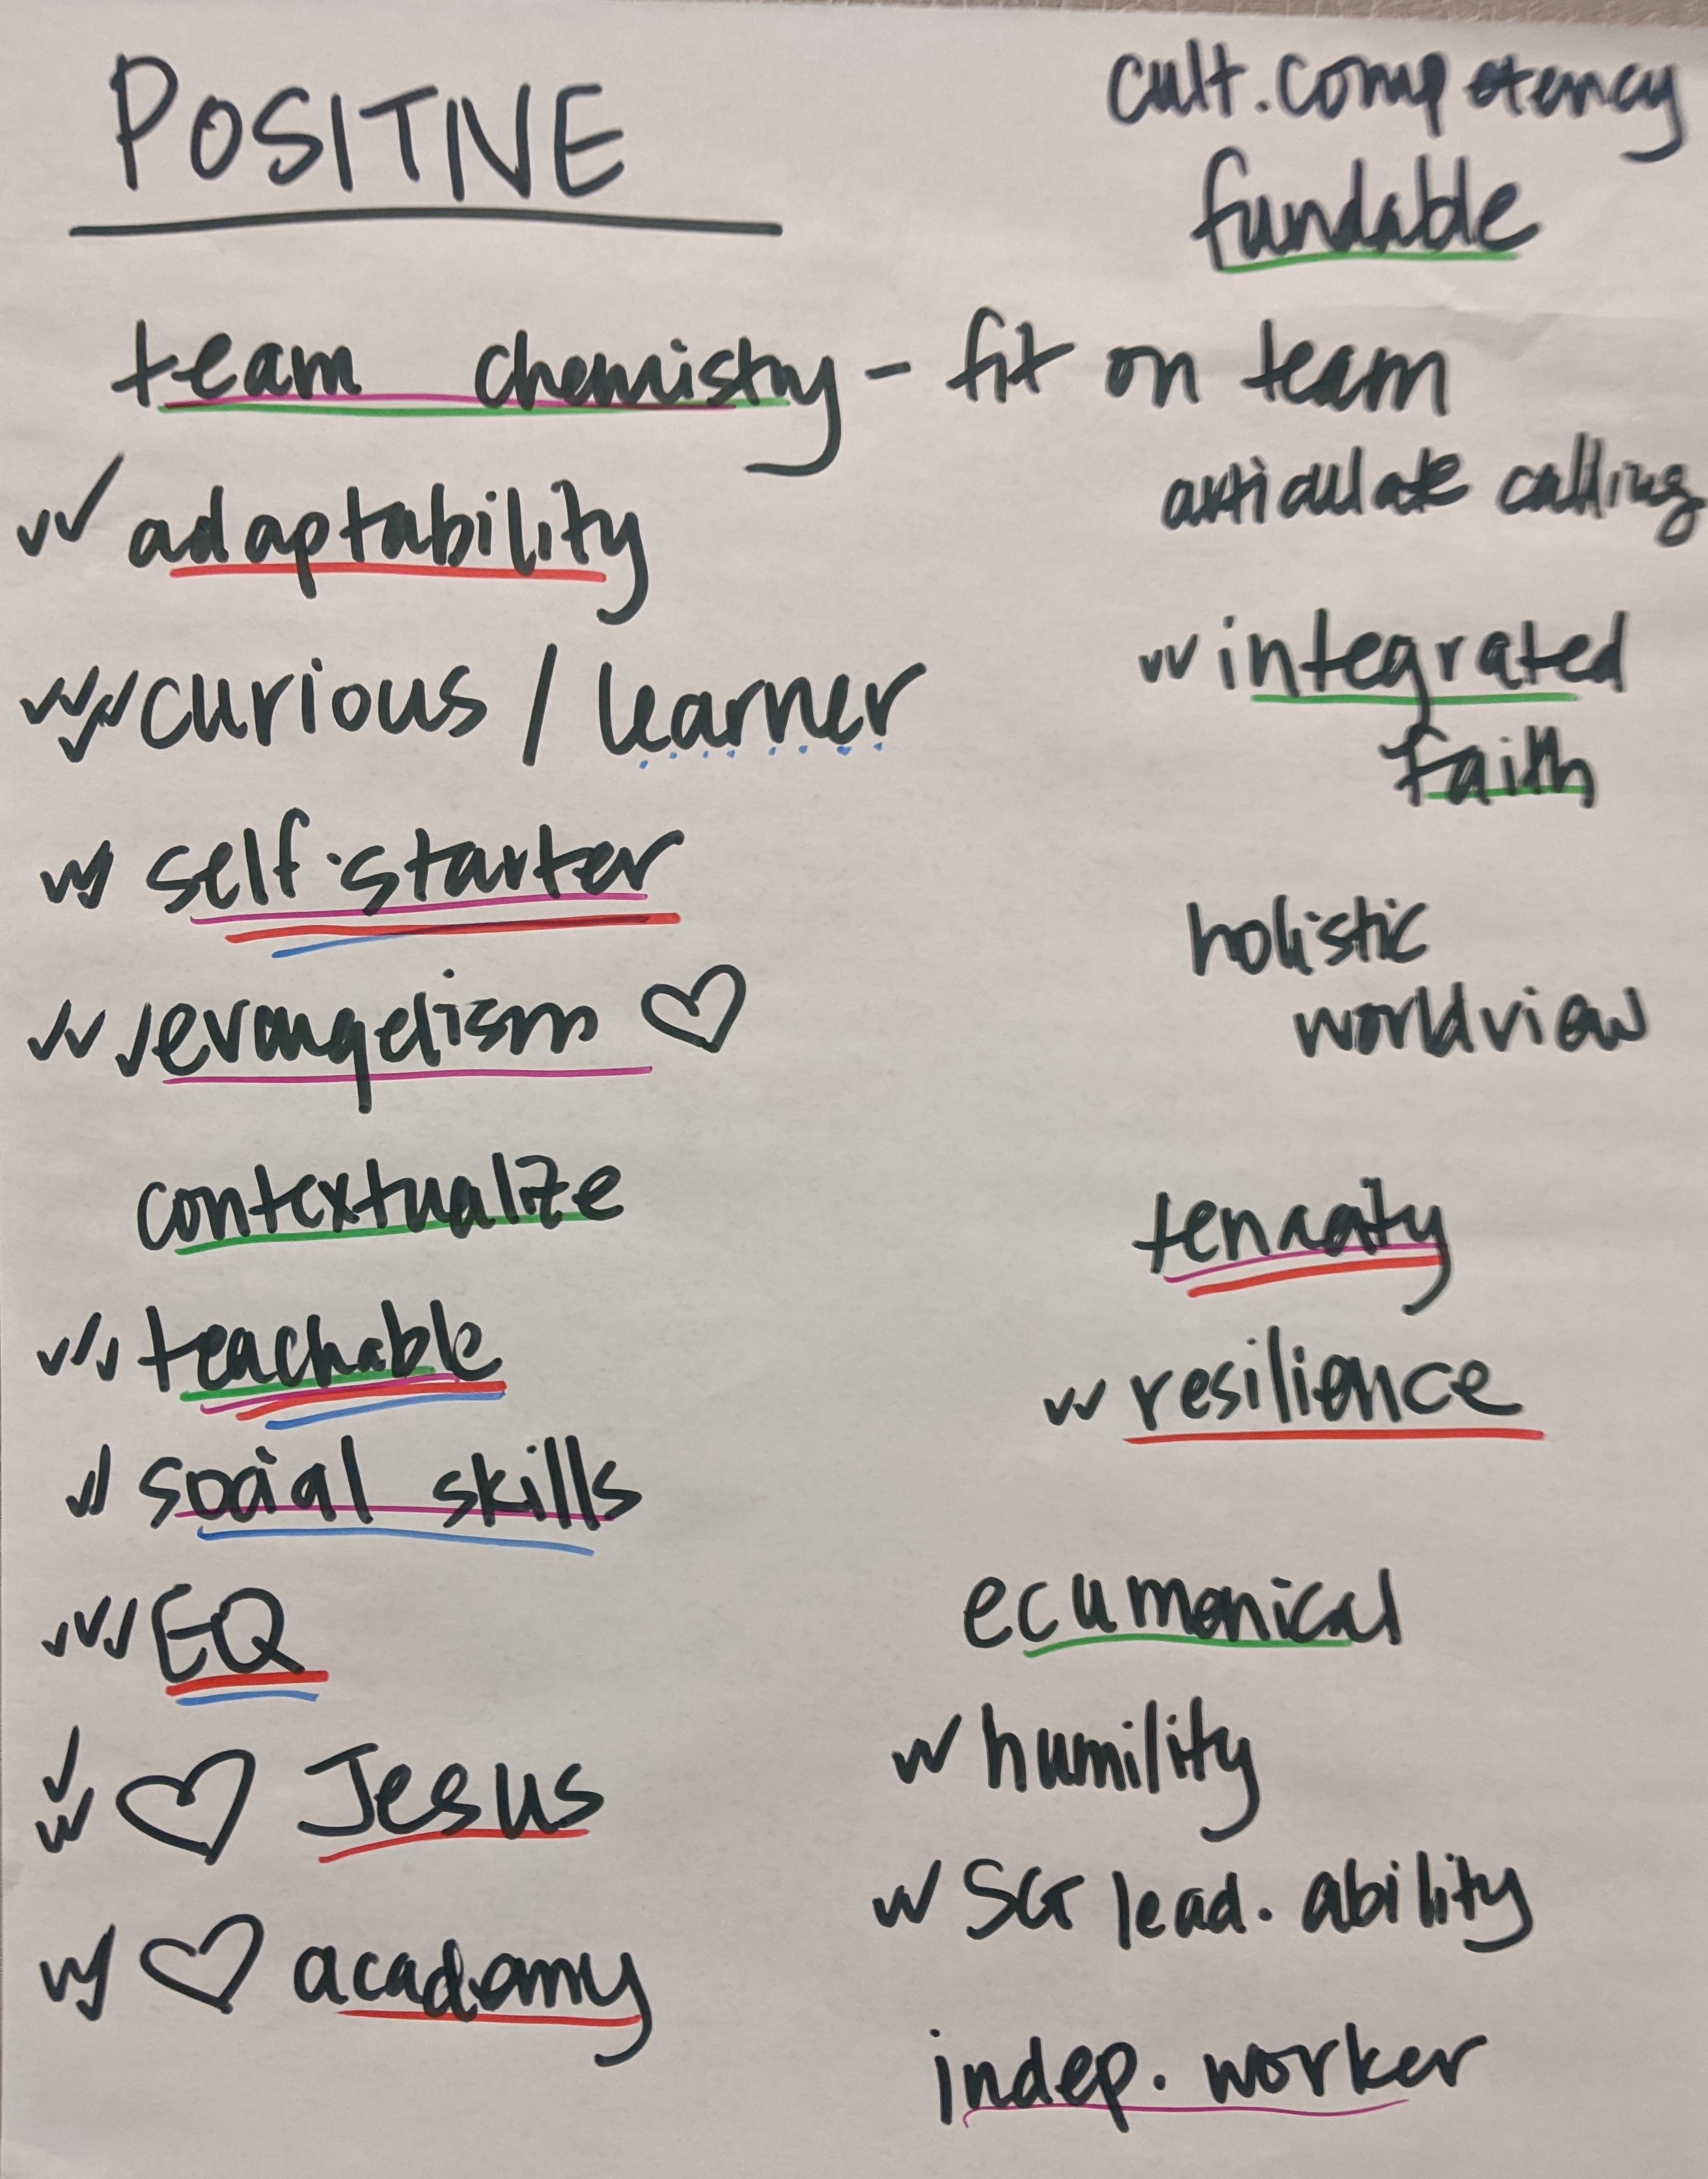 POSITIVE
cult. competency
fundable
team chemistry - fit on team
articulate calling
✓✓ adaptability
✓✓✓✓✓ curious / learner
✓✓✓ self-starter
✓✓✓ evangelism ♡
contextualize
✓✓✓ teachable
✓✓ social skills
✓✓✓ EQ
✓✓✓ ♡ Jesus
✓✓✓ ♡ academy
✓✓ integrated
faith
holistic
worldview
tenacity
✓✓ resilience
ecumenical
✓✓ humility
✓✓ SG lead. ability
indep. worker